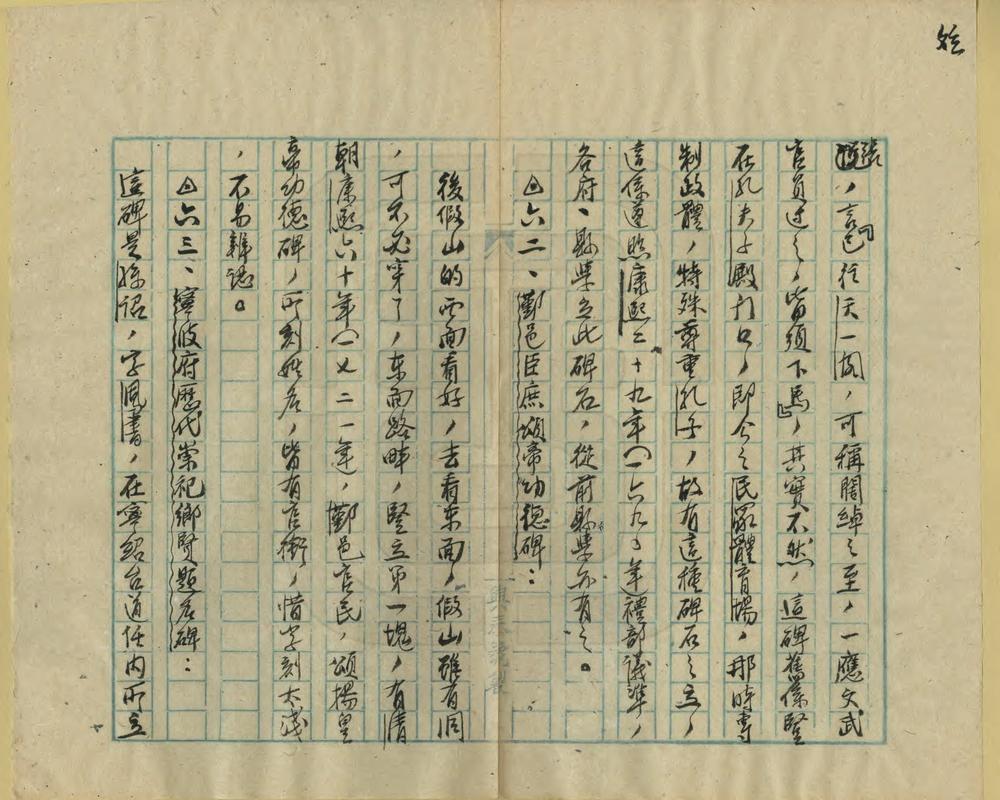 號，言「已往天一閣，可稱闊綽之至，一應文武
官員过之，皆須下馬」，其實不然，這碑舊係豎
在孔夫子殿門口，即今之民眾體育場，那時專
制政體，特殊尊重孔子，故有這種碑石之立，
這係遵照康熙二十九年（一六九〇年禮部議準，
各府、縣學立此碑石，從前縣學亦有之。
六二、鄞邑臣庶頌帝功德碑：
後假山的西面看好，去看东面，假山雖有洞
，可不必穿了，东面路畔，豎立第一塊，有清
朝康熙六十年（一七二一年，鄞邑官民，頌揚皇
帝功德碑，所刻姓名，皆有官銜，惜字刻太淺
，不易辨認。
六三、寧波府歷代崇祀鄉賢題名碑：
這碑是孫詔，字鳳書，在寧紹台道任內所立